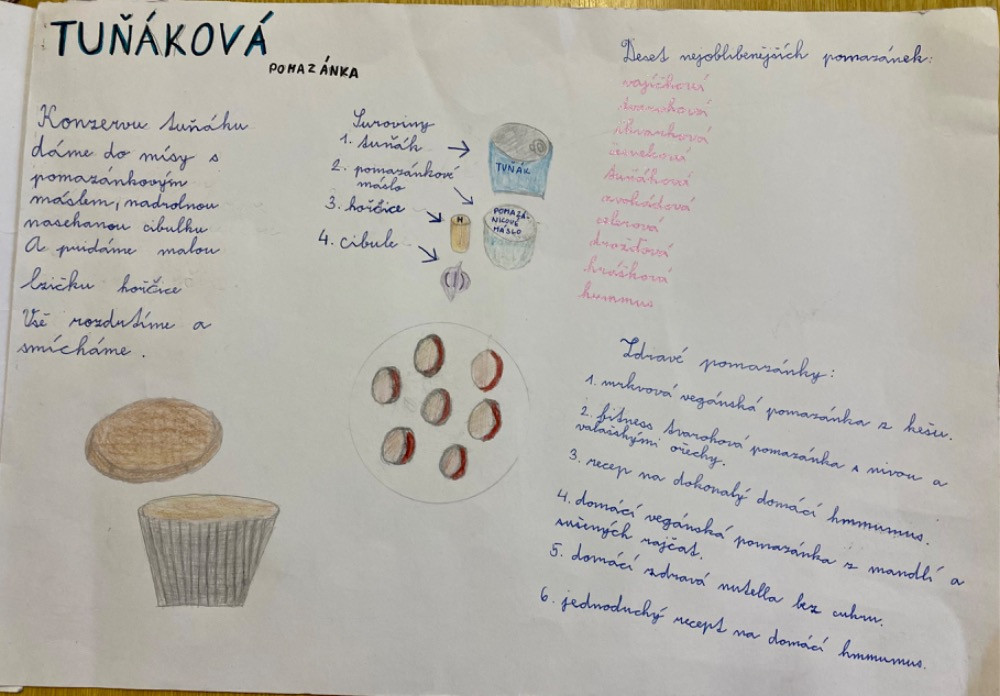 TUŇÁKOVÁ
POMAZÁNKA
Konzervu tuňáku
dáme do mísy s
pomazánkovým
máslem, nadrolnou
nasekanou cibulku
A puidáme malou
lzičku hořčice
Vše rozdutíme a
smícháme.
Suroviny
1. tuňák
2. pomazánkové
máslo
3. hořčice
4. cibule
TUŇÁK
POMAZÁ-
NKOVÉ
MÁSLO
H
Deset nejoblibenějších pomazánek:
vajíčková
tvarohová
škvarková
česneková
tuňáková
avokádová
celerová
drožďová
hrášková
hummus
Zdravé pomazánky:
1. mrkvová vegánská pomazánka z kešu.
2. fitness tvarohová pomazánka s nivou a
valašskými ořechy.
3. recep na dokonalý domácí hmmumus.
4. domácí vegánská pomazánka z mandlí a
sušených rajčat.
5. domácí zdravá nutella bez cukru.
6. jednoduchý recept na domácí hmmumus.